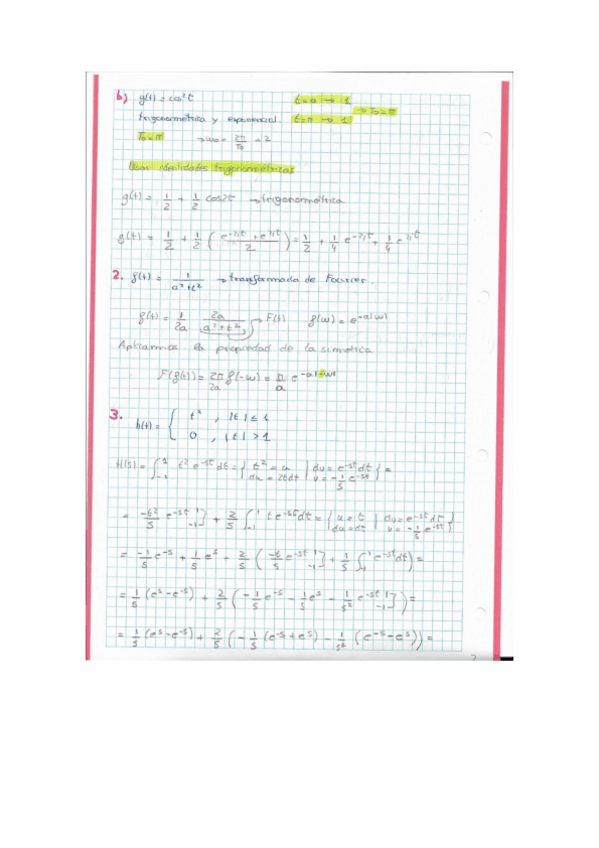 b) g(t) = cos² t t=0 → 1
trigonométrica y exponencial. t=π → 1 → T₀=π
T₀=π → ω₀ = 2π/T₀ = 2
Usan identidades trigonométricas
g(t) = 1/2 + 1/2 cos2t → trigonométrica
g(t) = 1/2 + 1/2 ( (e^-2jt + e^2jt)/2 ) = 1/2 + 1/4 e^-2jt + 1/4 e^2jt
2. g(t) = 1/(a²+t²) → transformada de Fourier.
g(t) = 1/2a 2a/(a²+t²) → F(t) g(ω) = e^-a|ω|
Aplicamos la propiedad de la simetrica
F(g(t)) = 2π/2a g(-ω) = π/a e^-a|-ω|
3. h(t) = { t² , |t| ≤ 1
0 , |t| > 1
H(s) = ∫₋₁¹ t² e^-st dt = { t² = u | dv = e^-st dt
du = 2tdt | v = -1/s e^-st } =
= -t²/s e^-st ]₋₁¹ + 2/s ∫₋₁¹ t e^-st dt = { u = t | dv = e^-st dt
du = dt | v = -1/s e^-st }
= -1/s e^-s + 1/s e^s + 2/s ( -t/s e^-st ]₋₁¹ + 1/s ∫₋₁¹ e^-st dt ) =
= 1/s (e^s - e^-s) + 2/s ( -1/s e^-s - 1/s e^s - 1/s² e^-st ]₋₁¹ ) =
= 1/s (e^s - e^-s) + 2/s ( -1/s (e^-s + e^s) - 1/s² (e^-s - e^s) ) =